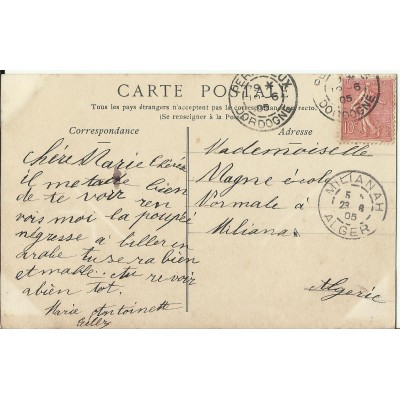 CARTE POSTALE
Tous les pays étrangers n'acceptent pas la correspondance au recto.
(Se renseigner à la Poste)
Correspondance
Adresse
Chère Marie Chérie
il me tarde bien
de te voir ren
vois moi la poupée
négresse a biller en
arabe tu sera bien
et mable. Au revoir
a bien tot.
Marie Antoinette
Mademoiselle
Magne école
Normale à
Miliana
Algerie
PERIGUEUX
6
05
DORDOGNE
6
05
DORDOGNE
10
MILIANAH
5
23 6
05
ALGER